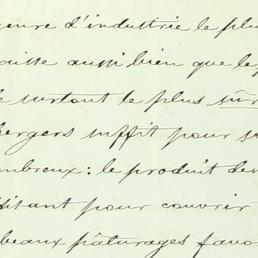 genre d'industrie le plus
aisse aussi bien que le p
le surtout le plus sûr
bergers suffit pour s
ombreux: le produit de
itant pour couvrir
beaux pâturages favo